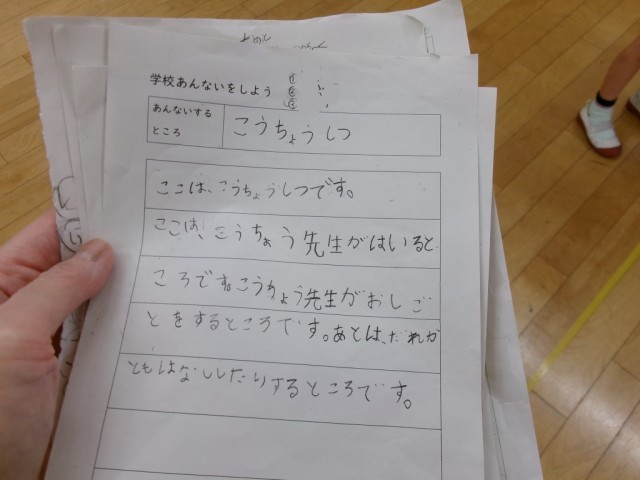 学校あんないをしよう
あんないする
ところ
こうちょうしつ
ここは、こうちょうしつです。
ここは、こうちょう先生がはいると
ころです。こうちょう先生がおしご
とをするところです。あとは、だれか
ともはなししたりするところです。